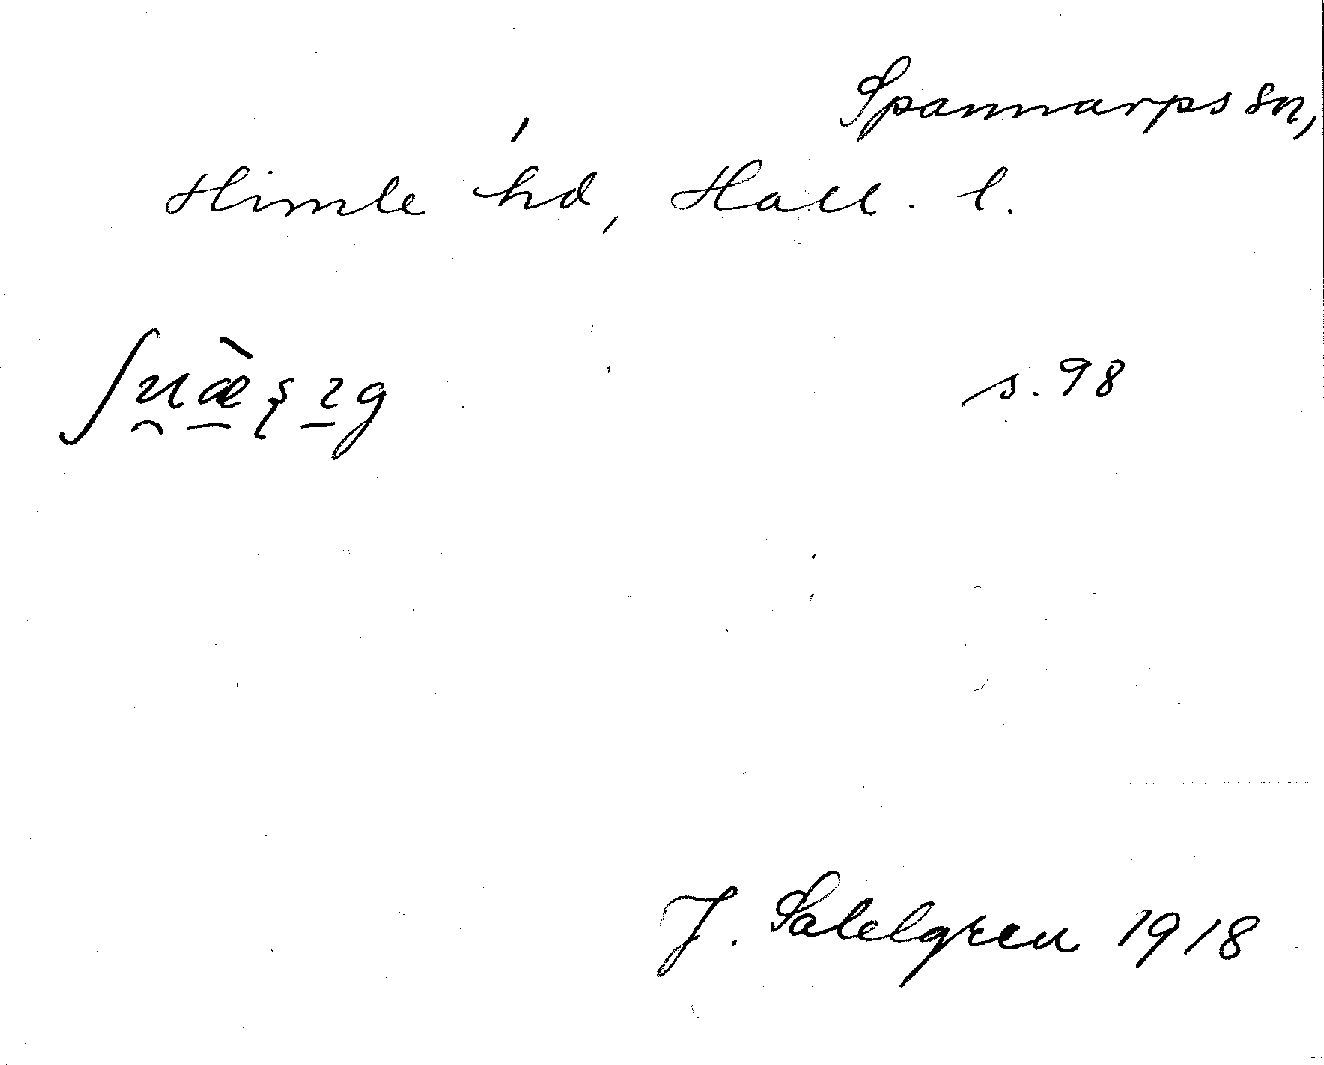 Spannarps sn,
Himle hd, Hall. l.
s. 98
J. Sahlgren 1918